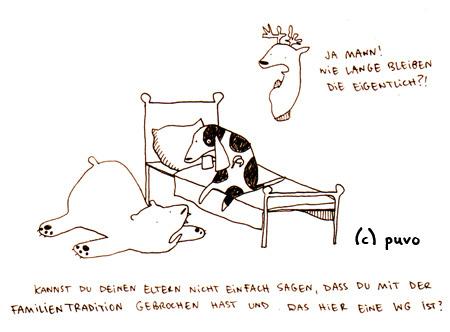 JA MANN!
WIE LANGE BLEIBEN
DIE EIGENTLICH?!
(c) puvo
KANNST DU DEINEN ELTERN NICHT EINFACH SAGEN, DASS DU MIT DER
FAMILIENTRADITION GEBROCHEN HAST UND DAS HIER EINE WG IST?